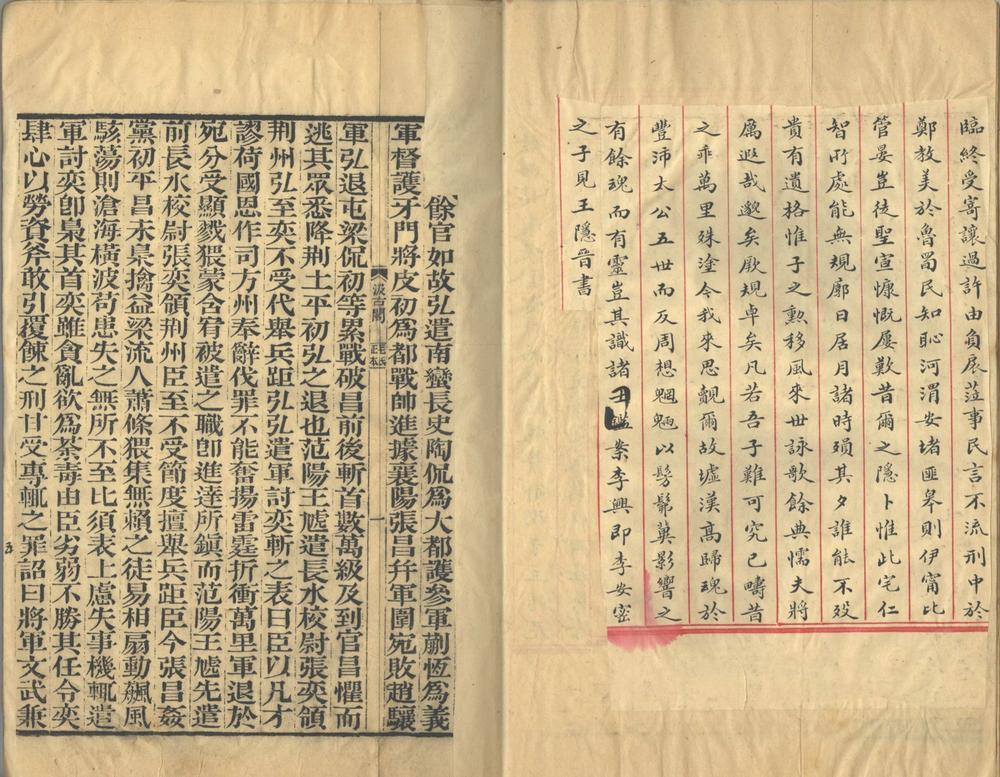 臨終受寄讓過許由負扆莅事民言不流刑中於
鄭教美於魯蜀民知恥河渭安堵匪皋則伊甯比
管晏豈徒聖宣慷慨屢歎昔爾之隱卜惟此宅仁
智所處能無規廓日居月諸時殞其夕誰能不歿
貴有遺格惟子之勲移風來世詠歌餘典懦夫將
厲遐哉邈矣厥規卓矣凡若吾子難可究已疇昔
之乖萬里殊塗今我來思覿爾故墟漢高歸魂於
豐沛太公五世而反周想魍魎以髣髴冀影響之
有餘魂而有靈豈其識諸 案李興即李安密
之子見王隱晉書
餘官如故弘遣南蠻長史陶侃為大都護參軍蒯恆為義
軍督護牙門將皮初為都戰帥進據襄陽張昌幷軍圍宛敗趙驤
汲古閣 毛氏正本 一
軍弘退屯梁侃初等累戰破昌前後斬首數萬級及到官昌懼而
逃其眾悉降荆土平初弘之退也范陽王虓遣長水校尉張奕領
荆州弘至奕不受代舉兵距弘弘遣軍討奕斬之表曰臣以凡才
謬荷國恩作司方州奉辭伐罪不能奮揚雷霆折衝萬里軍退於
宛分受顯戮猥蒙含宥被遣之職卽進達所鎮而范陽王虓先遣
前長水校尉張奕領荆州臣至不受節度擅舉兵距臣今張昌姦
黨初平昌未梟擒益梁流人蕭條猥集無賴之徒易相扇動飊風
駭蕩則滄海橫波苟患失之無所不至比須表上慮失事機輒遣
軍討奕卽梟其首奕雖貪亂欲為荼毒由臣劣弱不勝其任令奕
肆心以勞資斧敢引覆餗之刑甘受專輒之罪詔曰將軍文武兼